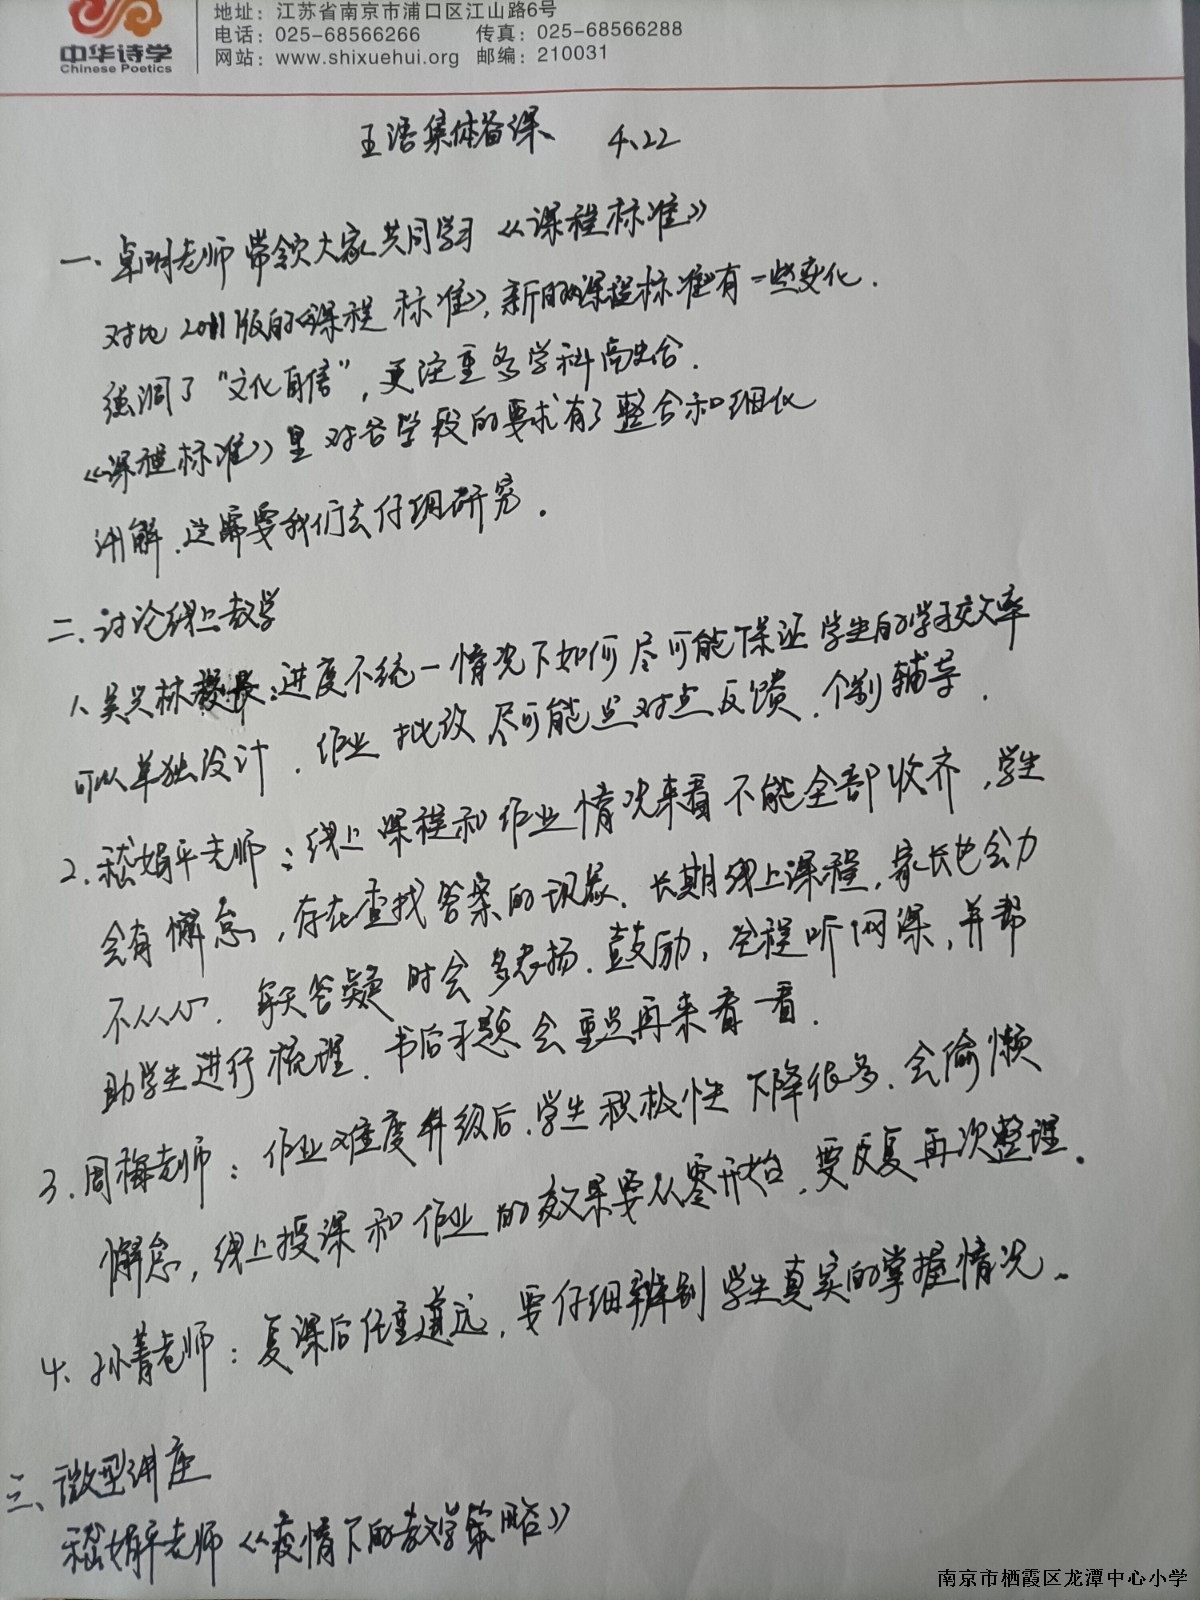 中华诗学
Chinese Poetics
地址：江苏省南京市浦口区江山路6号
电话：025-68566266 传真：025-68566288
网站：www.shixuehui.org 邮编：210031
五语集体备课 4.22
一、卓明老师带领大家共同学习《课程标准》
对比2011版的《课程标准》，新的《课程标准》有一些变化.
强调了“文化自信”，更注重多学科融合.
《课程标准》里对各学段的要求有了整合和细化
讲解，这需要我们去仔细研究.
二、讨论线上教学
1、吴兴林校长：进度不统一情况下如何尽可能保证学生的学习效率
可以单独设计，作业批改尽可能点对点反馈，个别辅导.
2、嵇娟平老师：线上课程和作业情况来看不能全部收齐，学生
会有懈怠，存在查找答案的现象，长期线上课程，家长也会力
不从心. 每天答疑时会多表扬、鼓励，全程听网课，并帮
助学生进行梳理，书后习题会重点再来看一看.
3、周梅老师：作业难度升级后，学生积极性下降很多，会偷懒
懈怠，线上授课和作业的效果要从零开始，要反复再次整理.
4、孙菁老师：复课后任重道远，要仔细辨别学生真实的掌握情况.
三、微型讲座
嵇娟平老师《疫情下的教学策略》
南京市栖霞区龙潭中心小学